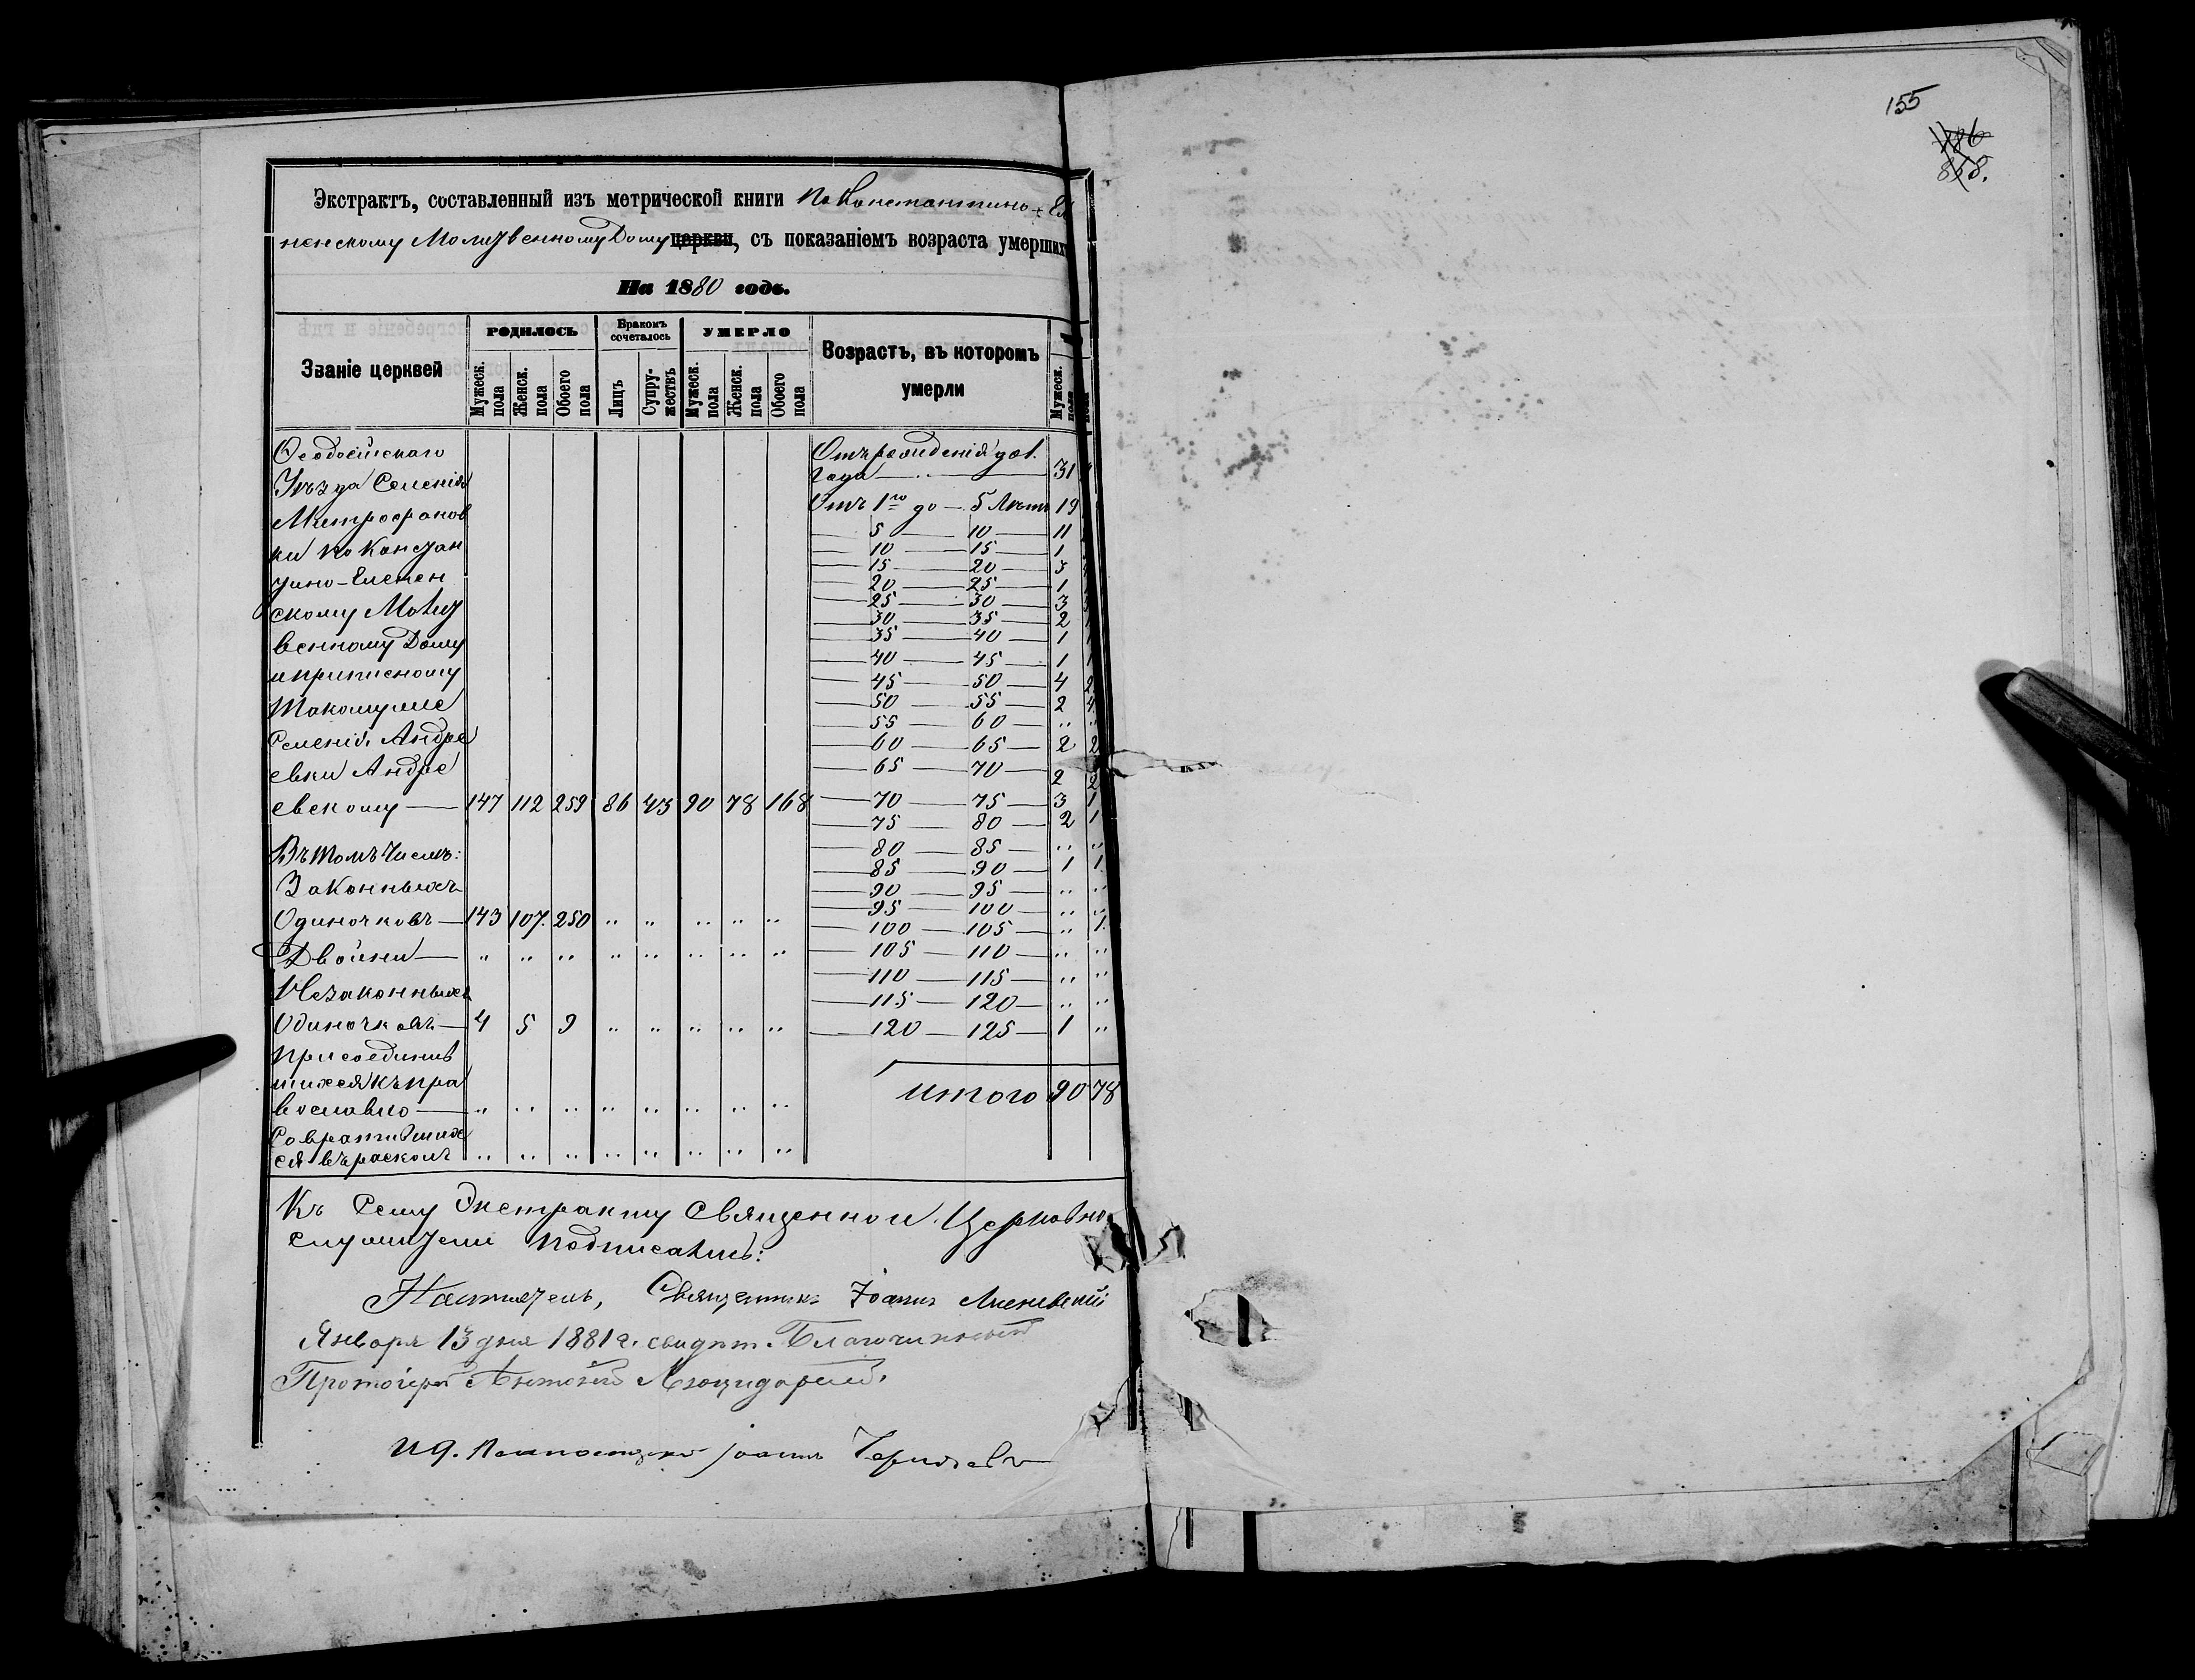 155
186
858.
Экстрактъ, составленный изъ метрической книги по Константино-Еле
ненскому Молитвенному Дому церкви, съ показаніемъ возраста умерших
На 1880 годъ.
Званіе церквей
РОДИЛОСЬ
Бракомъ сочеталось
УМЕРЛО
Возрастъ, въ которомъ умерли
Мужеск. пола
Женск. пола
Обоего пола
Лицъ
Супружествъ
Мужеск. пола
Женск. пола
Обоего пола
Мужеск. пола
Ѳеодосійскаго
Уѣзда Селенія
Митрофанов
ки по Констан
тино-Еленен
скому Молит
венному Дому
и приписному
Такомуже
Селенія Андре
евки Андре
евскому — 147 112 259 86 43 90 78 168
Въ томъ числѣ:
Законныхъ
Одиночковъ — 143 107. 250 .. .. .. .. ..
Двойни — .. .. .. .. .. .. .. ..
Незаконныхъ
Одиночковъ — 4 5 9 .. .. .. .. ..
Присоединив
шихся къ пра
вославію — .. .. .. .. .. .. .. ..
Совратившихся
ся въ расколъ .. .. .. .. .. .. .. ..
Отъ рожденія до 1.
года — 31
Отъ 1го до — 5 лѣтъ 19
— 5 — 10 — 11
— 10 — 15 — 1
— 15 — 20 — 3
— 20 — 25 — 1
— 25 — 30 — 3
— 30 — 35 — 2
— 35 — 40 — 1
— 40 — 45 — 1 1
— 45 — 50 — 4 2
— 50 — 55 — 2 4
— 55 — 60 — .. ..
— 60 — 65 — 2 2
— 65 — 70 — 2 2
— 70 — 75 — 3 1
— 75 — 80 — 2 1
— 80 — 85 — .. ..
— 85 — 90 — 1 1.
— 90 — 95 — .. ..
— 95 — 100 — .. ..
— 100 — 105 — .. 1.
— 105 — 110 — .. ..
— 110 — 115 — .. ..
— 115 — 120 — .. ..
— 120 — 125 — 1 ..
Итого 90 78
Къ сему Экстракту Священно и Церковно
служители подписались:
Настоятель, Священникъ Іоаннъ
Января 13 дня 1881 г. свидѣт. Благочинный
Протоіерей
И д. Псаломщика Іоаннъ